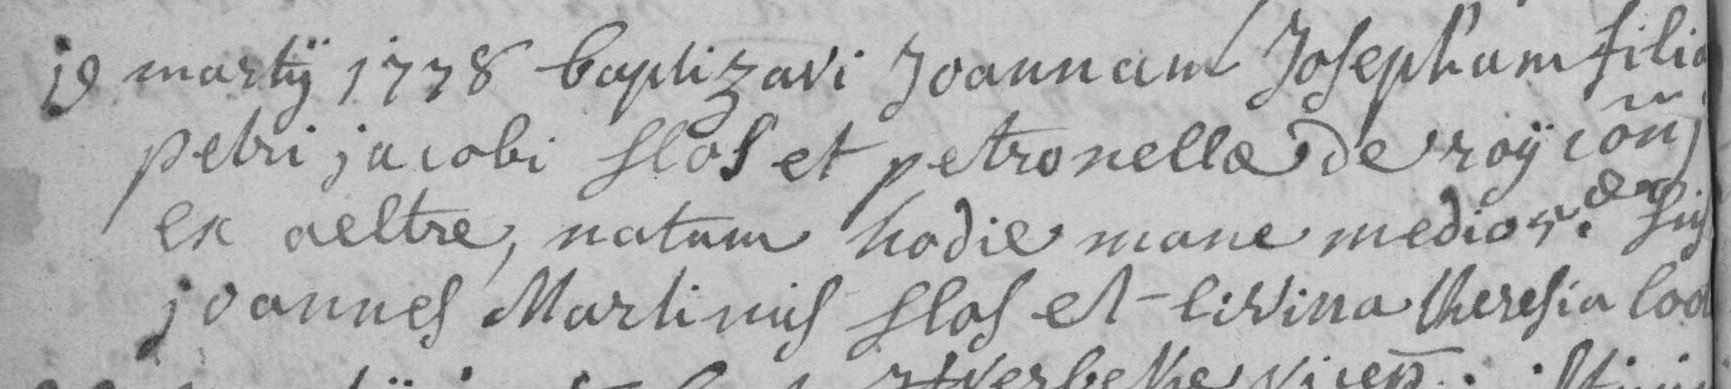 19 martÿ 1778 baptizavi Joannam Josepham filia
petri jacobi slos et petronellæ de roÿ conj
ex aeltre, natam hodie mane medio 5.æ sus
joannes Martinus slos et livina theresia loo